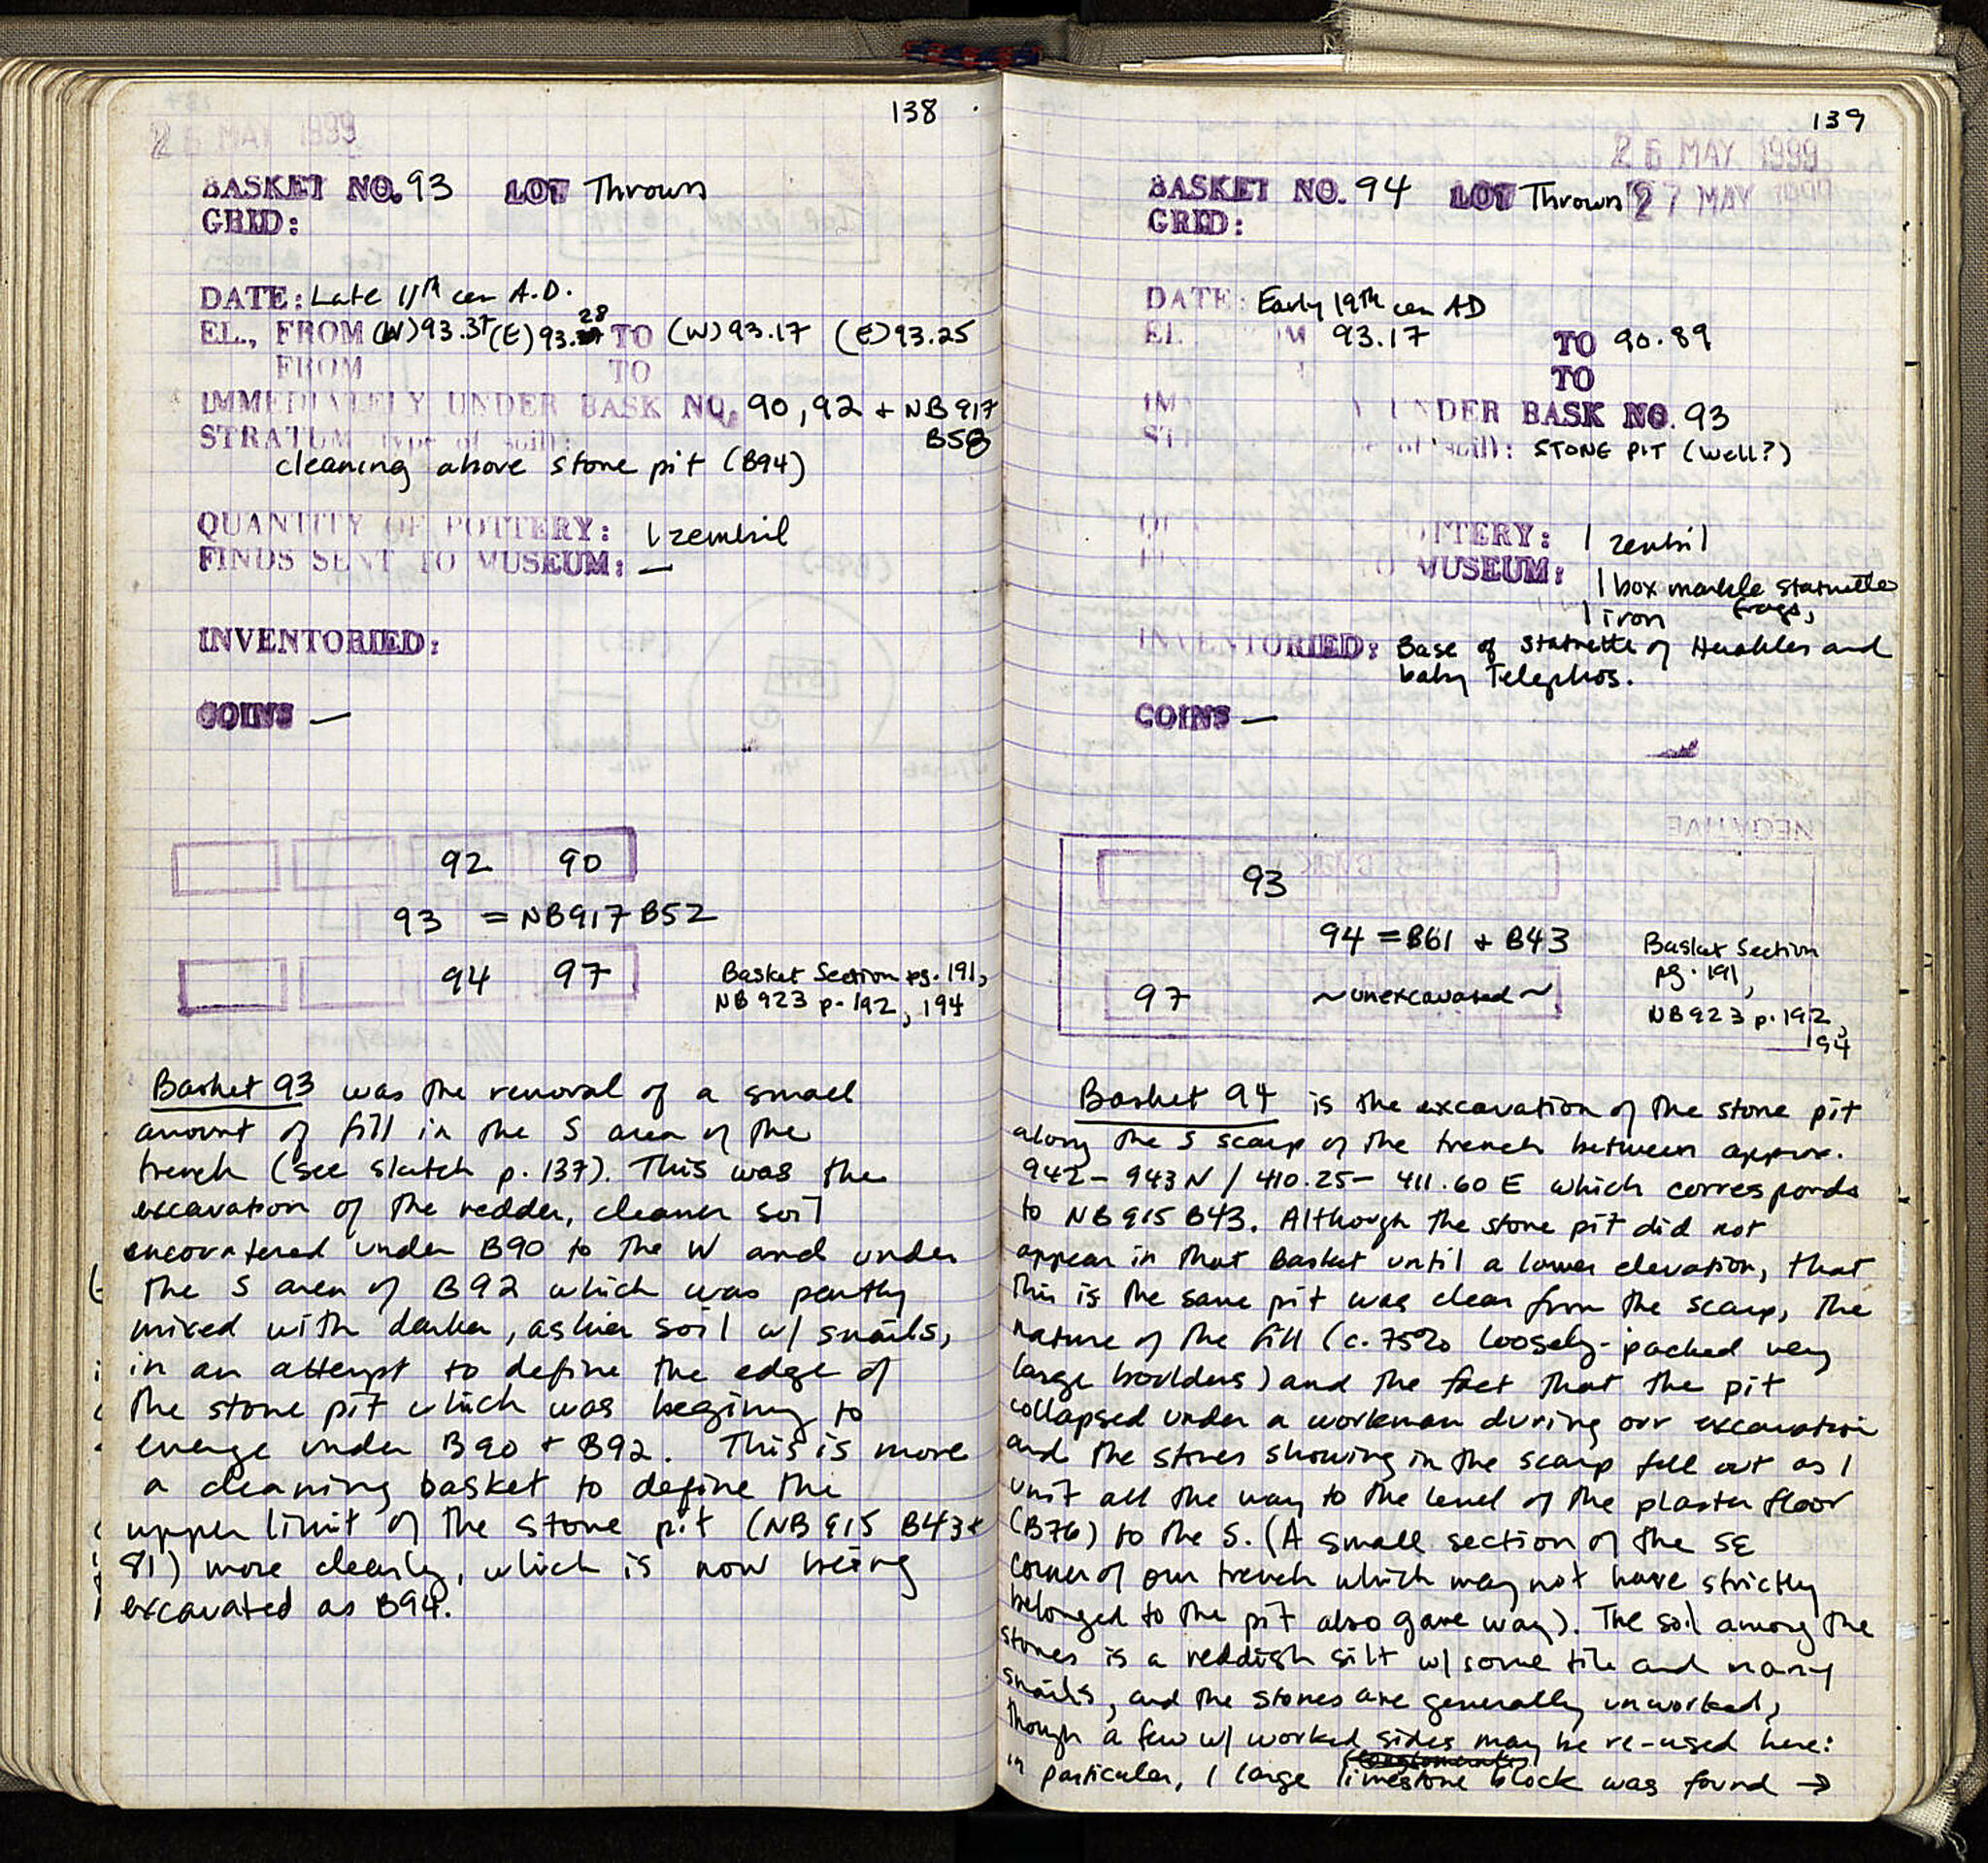 138
26 MAY 1999
BASKET NO. 93 LOT Thrown
GRID:
DATE: Late 11th cen A.D.
EL., FROM (W) 93.37 (E) 93.28 TO (W) 93.17 (E) 93.25
FROM TO
IMMEDIATELY UNDER BASK NO. 90, 92 + NB 917
B58
STRATUM (type of soil):
cleaning above stone pit (B94)
QUANTITY OF POTTERY: 1 zembil
FINDS SENT TO MUSEUM: —
INVENTORIED:
COINS —
92 90
93 = NB917 B52
94 97
Basket Section pg. 191,
NB 923 p. 192, 194
Basket 93 was the removal of a small
amount of fill in the S area of the
trench (see sketch p. 137). This was the
excavation of the redder, cleaner soil
encountered under B90 to the W and under
the S area of B92 which was partly
mixed with darker, ashier soil w/ snails,
in an attempt to define the edge of
the stone pit which was begining to
emerge under B90 + B92. This is more
a cleaning basket to define the
upper limit of the stone pit (NB 915 B43+
81) more clearly, which is now being
excavated as B94.
139
26 MAY 1999
BASKET NO. 94 LOT Thrown 27 MAY
GRID:
DATE: Early 19th cen AD
EL. M 93.17 TO 90.89
TO
UNDER BASK NO. 93
soil): STONE PIT (Well?)
TTERY: 1 zembil
MUSEUM: 1 box marble statuette
frags,
1 iron
INVENTORIED: Base of Statuette of Herakles and
baby Telephos.
COINS —
NEGATIVE
93
94 = B61 + B43
97 ~unexcavated~
Basket Section
pg. 191,
NB923 p. 192,
194
Basket 94 is the excavation of the stone pit
along the S scarp of the trench between approx.
942 - 943 N / 410.25 - 411.60 E which corresponds
to NB 915 B43. Although the stone pit did not
appear in that Basket until a lower elevation, that
this is the same pit was clear from the scarp, the
nature of the fill (c. 75% loosely-packed very
large boulders) and the fact that the pit
collapsed under a workman during our excavation
and the stones showing in the scarp fell out as 1
unit all the way to the level of the plaster floor
(B76) to the S. (A small section of the SE
corner of our trench which may not have strictly
belonged to the pit also gave way). The soil among the
stones is a reddish silt w/ some tile and many
snails, and the stones are generally unworked,
though a few w/ worked sides may be re-used here:
in particular, 1 large limestone block was found →